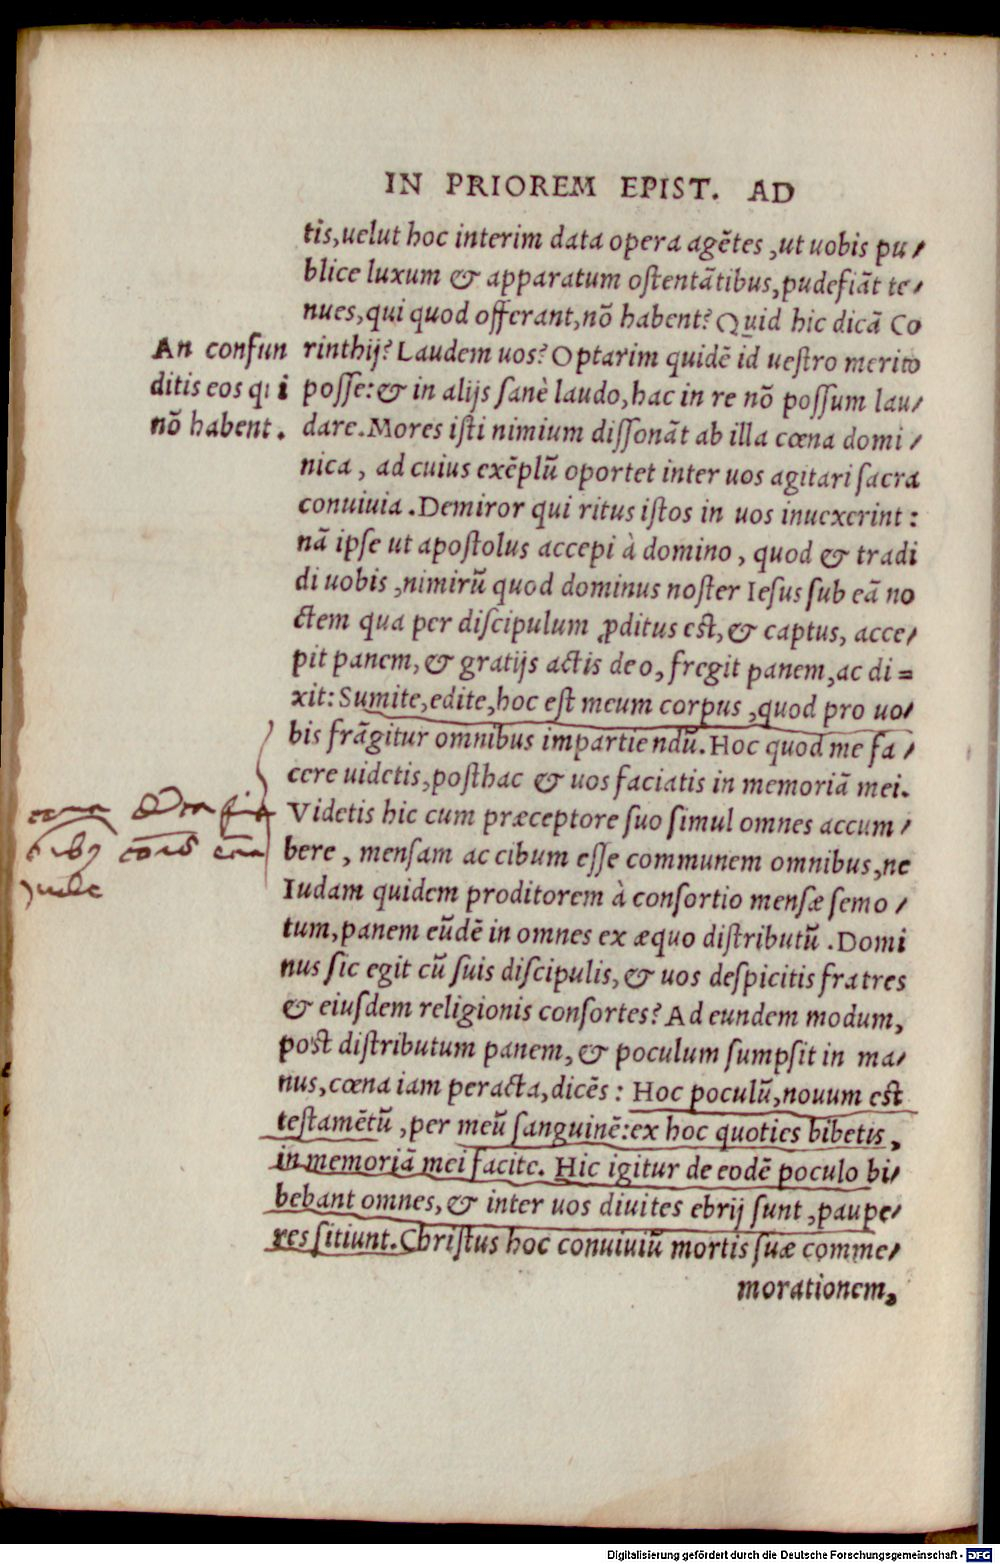 IN PRIOREM EPIST. AD
tis,uelut hoc interim data opera agẽtes ,ut uobis pu/
blice luxum & apparatum oſtentãtibus,pudefiãt te/
nues,qui quod offerant,nõ habent? Quid hic dicã Co
An confun
ditis eos qui
nõ habent.
rinthij? Laudem uos? Optarim quidẽ id ueſtro merito
poſſe: & in alijs ſanè laudo,hac in re nõ poſſum lau/
dare.Mores iſti nimium diſſonãt ab illa cœna domi/
nica, ad cuius exẽplũ oportet inter uos agitari ſacra
conuiuia.Demiror qui ritus iſtos in uos inuexerint:
nã ipſe ut apoſtolus accepi à domino, quod & tradi
di uobis ,nimirũ quod dominus noſter Ieſus ſub eã no
ctem qua per diſcipulum ꝓditus eſt,& captus, acce/
pit panem,& gratijs actis deo, fregit panem,ac di=
xit: Sumite,edite,hoc eſt meum corpus ,quod pro uo/
bis frãgitur omnibus impartiendũ. Hoc quod me fa/
cere uidetis,poſthac & uos faciatis in memoriã mei.
Videtis hic cum præceptore ſuo ſimul omnes accum/
bere, menſam ac cibum eſſe communem omnibus,ne
Iudam quidem proditorem à conſortio menſæ ſemo/
tum,panem eũdẽ in omnes ex æquo diſtributũ .Domi
nus ſic egit cũ ſuis diſcipulis,& uos deſpicitis fratres
& eiuſdem religionis conſortes? Ad eundem modum,
poſt diſtributum panem,& poculum ſumpſit in ma/
nus,cœna iam peracta,dicẽs: Hoc poculũ,nouum eſt
teſtamẽtũ ,per meũ ſanguinẽ:ex hoc quoties bibetis,
in memoriã mei facite. Hic igitur de eodẽ poculo bi/
bebant omnes,& inter uos diuites ebrij ſunt,paupe/
res ſitiunt.Chriſtus hoc conuiuiũ mortis ſuæ comme/
morationem,
Digitalisierung gefördert durch die Deutsche Forschungsgemeinschaft - DFG